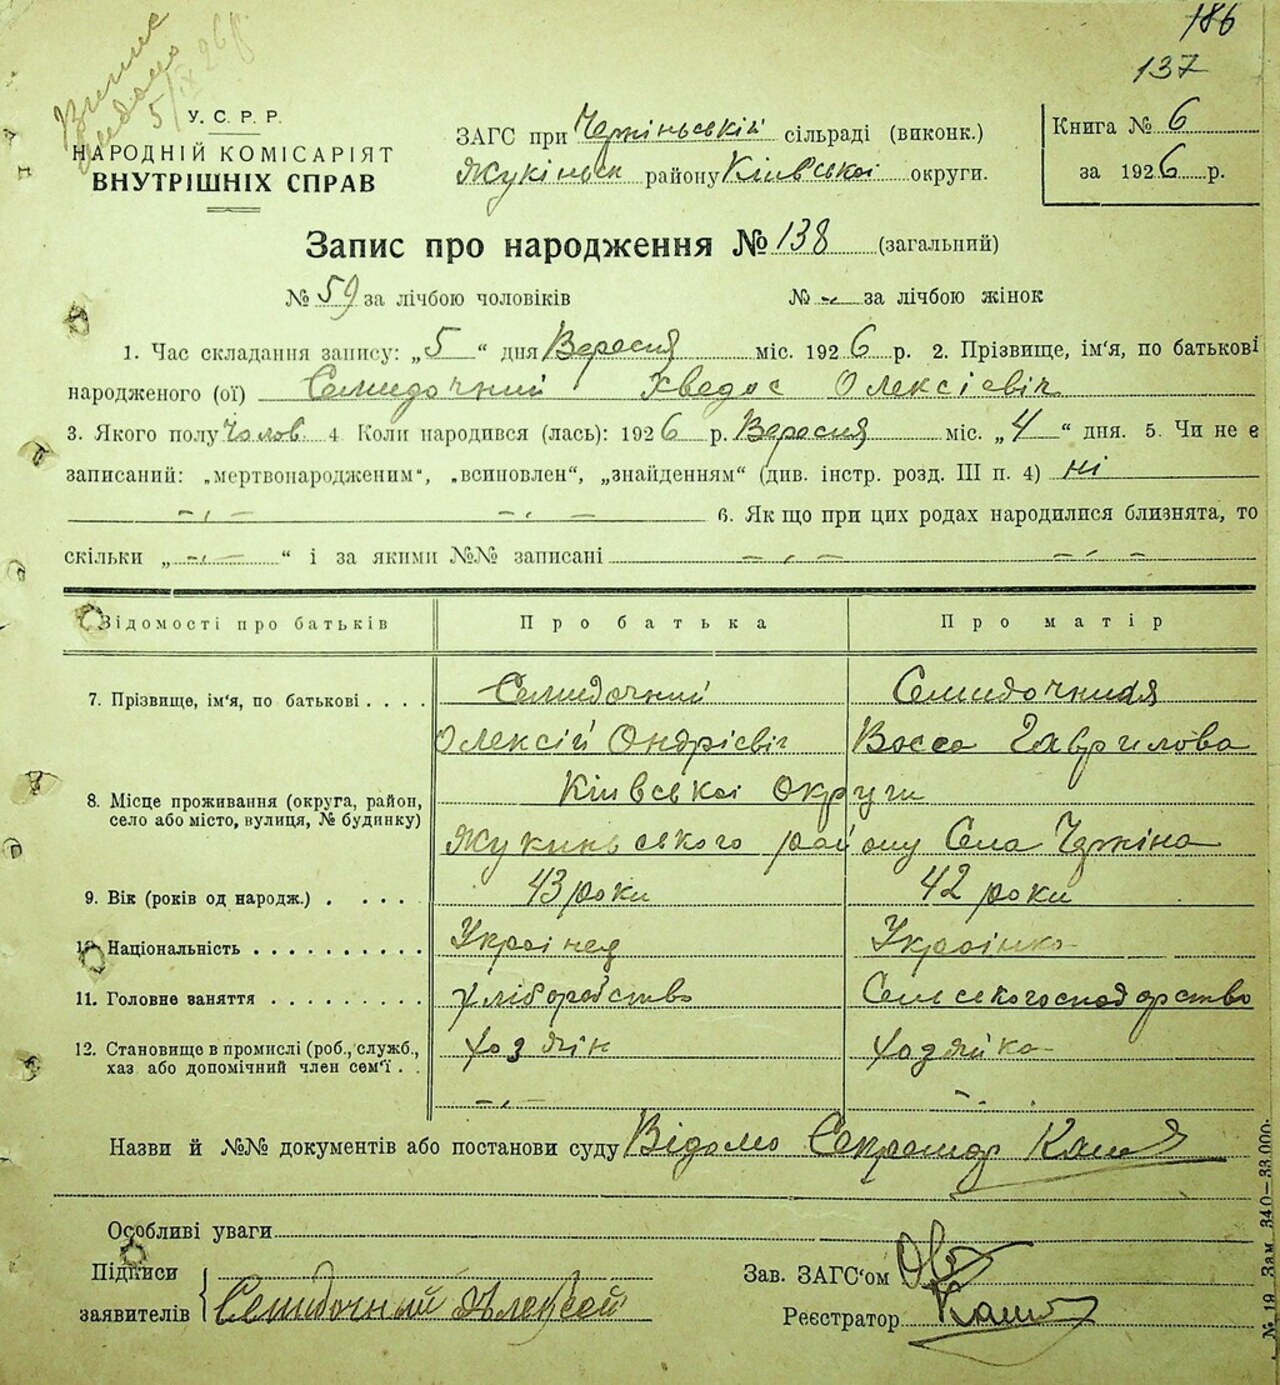 186
137
5/IX 26 р
У. С. Р. Р.
НАРОДНІЙ КОМІСАРІЯТ
ВНУТРІШНІХ СПРАВ
ЗАГС при Чернінській сільраді (виконк.)
Жукінськ району Київської округи.
Книга № 6
за 1926 р.
Запис про народження № 138 (загальний)
№ 59 за лічбою чоловіків № -„- за лічбою жінок
1. Час складання запису: „5“ дня Вересня міс. 1926 р. 2. Прізвище, ім'я, по батькові
народженого (ої) Семидочний Хведос Олексієвіч
3. Якого полу Чолов. 4. Коли народився (лась): 1926 р. Вересня міс. „4“ дня. 5. Чи не є
записаний: „мертвонародженим“, „всиновлен“, „знайденням“ (див. інстр. розд. III п. 4) ні
6. Як що при цих родах народилися близнята, то
скільки „-„-“ і за якими №№ записані -„- -„-
Відомості про батьків Про батька Про матір
7. Прізвище, ім'я, по батькові . . . . Семидочний Семидочная
Олексій Ондрієвіч Васса Гаврилова
8. Місце проживання (округа, район, село або місто, вулиця, № будинку) Київської Округи
Жукинського району Села Черніна
9. Вік (років од народж.) . . . . 43 роки 42 роки
10. Національність . . . . . . . . . . Українец Українка
11. Головне заняття . . . . . . . . . хліборобство Сельскогосподарство
12. Становище в промислі (роб., служб., хаз або допомічний член сем'ї . . Хозяїн Хозяйка
-„- -„-
Назви й №№ документів або постанови суду Відомо Секретар
Особливі уваги
Підписи
заявителів { Семидочний Алексей
Зав. ЗАГС'ом
Реєстратор
№ 19 Зам. 340—33.000.